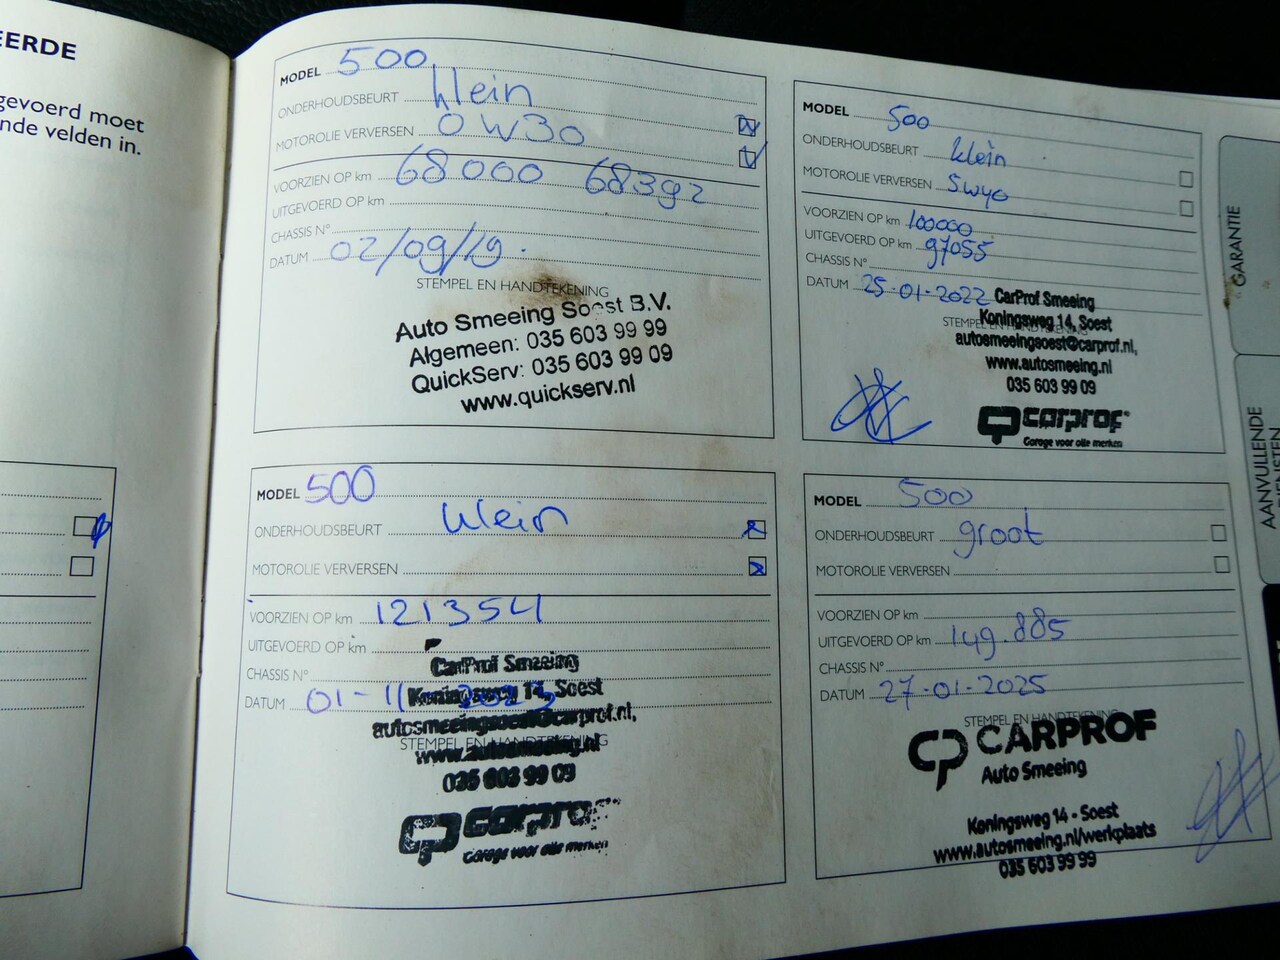 EERDE
gevoerd moet
nde velden in.
MODEL 500
ONDERHOUDSBEURT klein
MOTOROLIE VERVERSEN 0W30
VOORZIEN OP km 68000 68392
UITGEVOERD OP km
CHASSIS N°
DATUM 02/09/19.
STEMPEL EN HANDTEKENING
Auto Smeeing Soest B.V.
Algemeen: 035 603 99 99
QuickServ: 035 603 99 09
www.quickserv.nl
MODEL 500
ONDERHOUDSBEURT klein
MOTOROLIE VERVERSEN 5W40
VOORZIEN OP km 100000
UITGEVOERD OP km 97055
CHASSIS N°
DATUM 25-01-2022
STEMPEL EN HANDTEKENING
CarProf Smeeing
Koningsweg 14, Soest
autosmeeingsoest@carprof.nl,
www.autosmeeing.nl
035 603 99 09
carprof
Garage voor alle merken
MODEL 500
ONDERHOUDSBEURT klein
MOTOROLIE VERVERSEN
VOORZIEN OP km 121354
UITGEVOERD OP km
CHASSIS N°
DATUM 01-11
STEMPEL EN HANDTEKENING
CarProf Smeeing
Koningsweg 14, Soest
autosmeeingsoest@carprof.nl,
www.autosmeeing.nl
035 603 99 09
carprof
Garage voor alle merken
MODEL 500
ONDERHOUDSBEURT groot
MOTOROLIE VERVERSEN
VOORZIEN OP km
UITGEVOERD OP km 149.885
CHASSIS N°
DATUM 27-01-2025
STEMPEL EN HANDTEKENING
CP CARPROF
Auto Smeeing
Koningsweg 14 - Soest
www.autosmeeing.nl/werkplaats
035 603 99 99
GARANTIE
AANVULLENDE